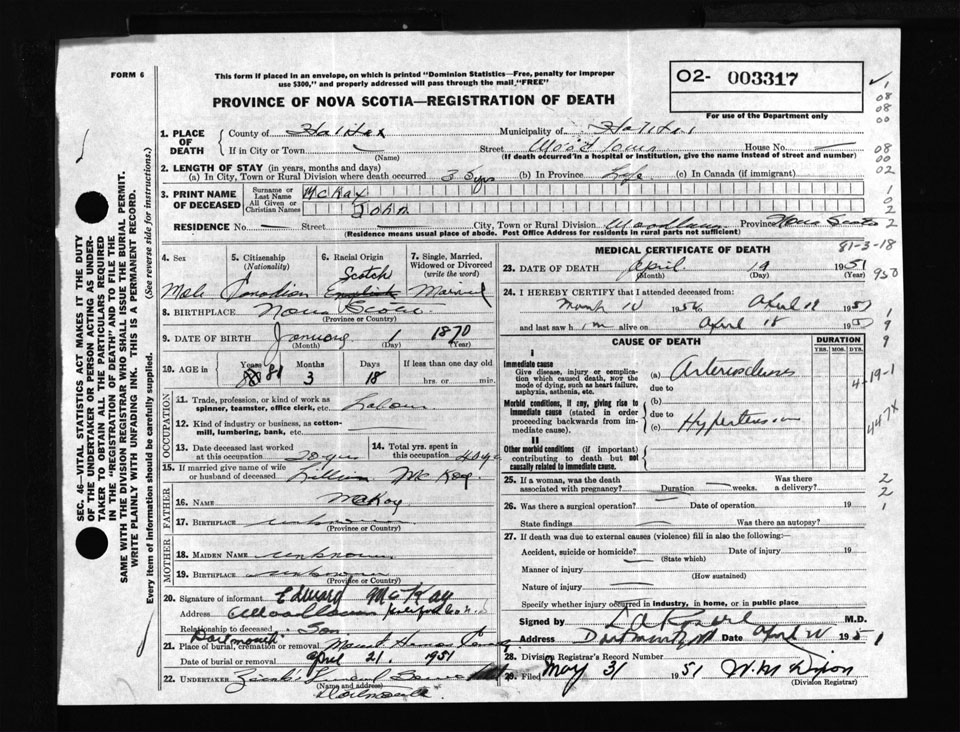 FORM 6
This form if placed in an envelope, on which is printed "Dominion Statistics—Free, penalty for improper
use $300," and properly addressed will pass through the mail "FREE"
O2- 003317
For use of the Department only
PROVINCE OF NOVA SCOTIA—REGISTRATION OF DEATH
SEC. 46—VITAL STATISTICS ACT MAKES IT THE DUTY
OF THE UNDERTAKER OR PERSON ACTING AS UNDER-
TAKER TO OBTAIN ALL THE PARTICULARS REQUIRED
IN THE "REGISTRATION OF DEATH" AND TO FILE THE
SAME WITH THE DIVISION REGISTRAR WHO SHALL ISSUE THE BURIAL PERMIT.
WRITE PLAINLY WITH UNFADING INK. THIS IS A PERMANENT RECORD.
Every item of information should be carefully supplied. (See reverse side for instructions.)
1. PLACE OF DEATH County of Halifax Municipality of Halifax
If in City or Town — (Name) Street House No. —
(If death occurred in a hospital or institution, give the name instead of street and number)
2. LENGTH OF STAY (in years, months and days)
(a) In City, Town or Rural Division where death occurred 35 yrs (b) In Province Life (c) In Canada (if immigrant)
3. PRINT NAME OF DECEASED Surname or Last Name McKay
All Given or Christian Names John
RESIDENCE No. — Street — City, Town or Rural Division Woodlawn Province Nova Scotia
(Residence means usual place of abode. Post Office Address for residents in rural parts not sufficient)
4. Sex Male
5. Citizenship (Nationality) Canadian
6. Racial Origin Scotch English
7. Single, Married, Widowed or Divorced (write the word) Married
8. BIRTHPLACE Nova Scotia
(Province or Country)
9. DATE OF BIRTH January 1 1870
(Month) (Day) (Year)
10. AGE in Years 81 Months 3 Days 18 If less than one day old hrs. or min.
OCCUPATION
11. Trade, profession, or kind of work as spinner, teamster, office clerk, etc. Labour
12. Kind of industry or business, as cotton-mill, lumbering, bank, etc.
13. Date deceased last worked at this occupation 20 yrs
14. Total yrs. spent in this occupation 40 yrs
15. If married give name of wife or husband of deceased Lillian McKay
FATHER
16. Name McKay
17. Birthplace unknown
(Province or Country)
MOTHER
18. Maiden Name unknown
19. Birthplace unknown
(Province or Country)
20. Signature of informant Edward McKay
Address Woodlawn
Relationship to deceased Son
Dartmouth
21. Place of burial, cremation or removal Mount Hermon
Date of burial or removal April 21, 1951
22. UNDERTAKER Funeral
(Name and address) Dartmouth
MEDICAL CERTIFICATE OF DEATH
81-3-18
23. DATE OF DEATH April 19 1951
(Month) (Day) (Year)
950
24. I HEREBY CERTIFY that I attended deceased from:
March 10 April 19 1951
and last saw him alive on April 18 1951
CAUSE OF DEATH
DURATION
YRS. MOS. DYS.
I
Immediate cause
Give disease, injury or complica-
tion which caused death, NOT the
mode of dying, such as heart failure,
asphyxia, asthenia, etc.
(a)
due to
4-19-1
Morbid conditions, if any, giving rise to
immediate cause (stated in order
proceeding backwards from im-
mediate cause).
(b)
due to
(c) Hypertension
447X
II
Other morbid conditions (if important)
contributing to death but not
causally related to immediate cause.
25. If a woman, was the death associated with pregnancy? Duration — weeks. Was there a delivery?
26. Was there a surgical operation? — Date of operation 19
State findings — Was there an autopsy?
27. If death was due to external causes (violence) fill in also the following:
Accident, suicide or homicide? — Date of injury 19
(State which)
Manner of injury —
(How sustained)
Nature of injury —
Specify whether injury occurred in industry, in home, or in public place
Signed by M.D.
Address Dartmouth Date April 1951
28. Division Registrar's Record Number
29. Filed May 31 1951
(Division Registrar)